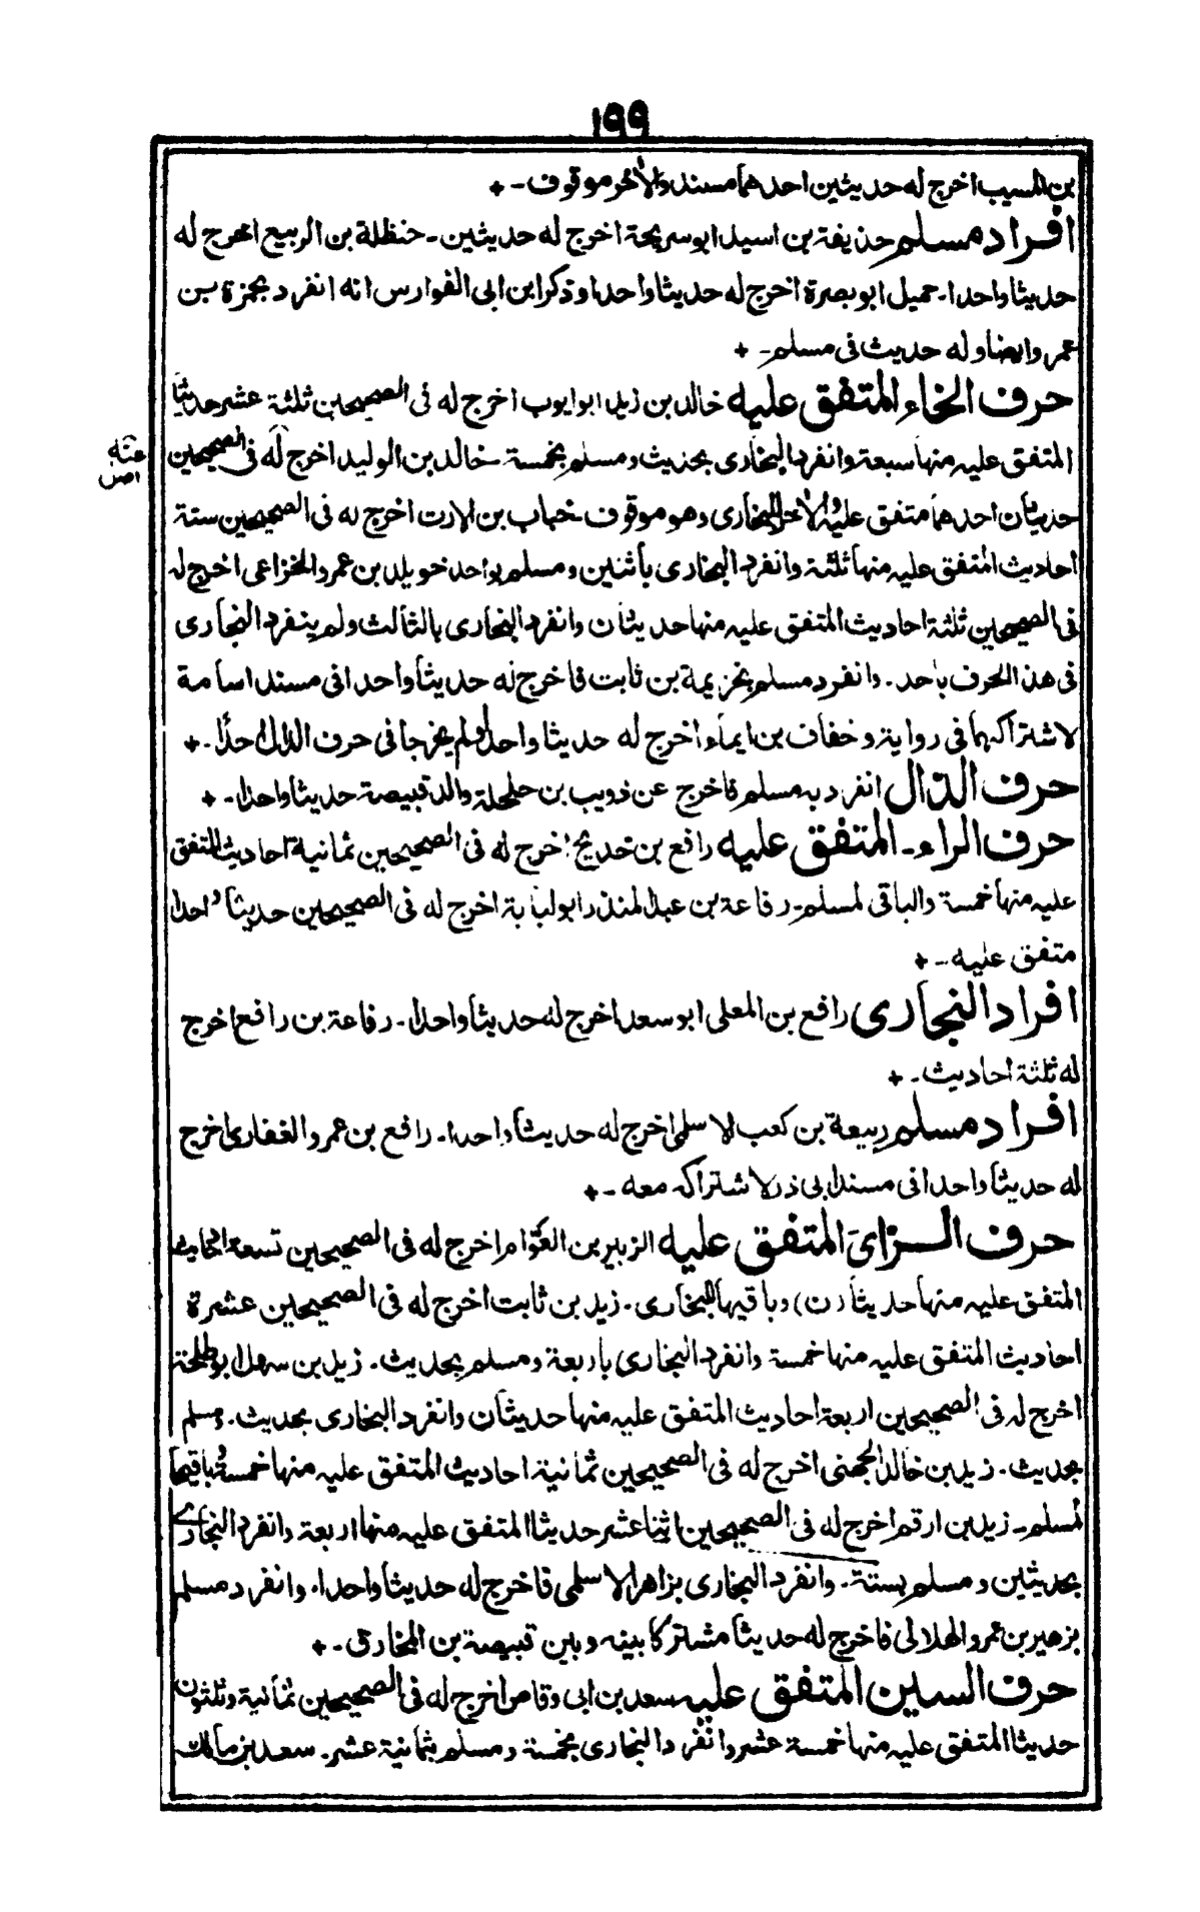 ١٩٩
بن المسيب اخرج له حديثين احدهما مسند والأخر موقوف ـ +
افراد مسلم حذيفة بن اسيد ابو سريحة اخرج له حديثين ـ حنظلة بن الربيع اخرج له
حديثا واحدا ـ جميل ابو بصرة اخرج له حديثا واحدا و ذكر ابن ابى الفوارس انه انفرد بحمزة بن
عمر و ايضا و له حديث فى مسلم ـ +
حرف الخاء المتفق عليه خالد بن زيد ابو ايوب اخرج له فى الصحيحين ثلثة عشر حديثا
المتفق عليه منها سبعة وانفرد البخارى بحديث و مسلم بخمسة ـ خالد بن الوليد اخرج له فى الصحيحين
حديثان احدهما متفق عليه والأخر للبخارى وهو موقوف ـ خباب بن الارت اخرج له فى الصحيحين ستة
احاديث المتفق عليه منها ثلثة وانفرد البخارى بأثنين و مسلم بواحد خويلد بن عمرو الخزاعى اخرج له
فى الصحيحين ثلثة احاديث المتفق عليه منها حديثان وانفرد البخارى بالثالث ولم ينفرد البخارى
فى هذا الحرف باحد ـ وانفرد مسلم بخزيمة بن ثابت فاخرج له حديثا واحدا فى مسند اسامة
لاشتراكهما فى رواية و خفاف بن ايماء اخرج له حديثا واحدا ولم يخرجا فى حرف الدال احدا ـ +
حرف الذال انفرد به مسلم فاخرج عن ذويب بن حلحلة والد قبيصة حديثا واحدا ـ +
حرف الراء ـ المتفق عليه رافع بن خديج اخرج له فى الصحيحين ثمانية احاديث المتفق
عليه منها خمسة والباقى لمسلم ـ رفاعة بن عبد المنذر ابو لبابة اخرج له فى الصحيحين حديثا واحدا
متفق عليه ـ +
افراد البخارى رافع بن المعلى ابو سعد اخرج له حديثا واحدا ـ رفاعة بن رافع اخرج
له ثلثة احاديث ـ +
افراد مسلم ربيعة بن كعب الاسلمى اخرج له حديثا واحدا ـ رافع بن عمرو الغفارى اخرج
له حديثا واحدا فى مسند ابى ذر لاشتراكه معه ـ +
حرف الزاى المتفق عليه الزبير بن العوّام اخرج له فى الصحيحين تسعة احاديث
المتفق عليه منها حديثا (ن) و باقيها للبخارى ـ زيد بن ثابت اخرج له فى الصحيحين عشرة
احاديث المتفق عليه منها خمسة وانفرد البخارى باربعة ومسلم بحديث ـ زيد بن سهل ابو طلحة
اخرج له فى الصحيحين اربعة احاديث المتفق عليه منها حديثان وانفرد البخارى بحديث ـ ومسلم
بحديث ـ زيد بن خالد الجهنى اخرج له فى الصحيحين ثمانية احاديث المتفق عليه منها خمسة وباقيها
لمسلم ـ زيد بن ارقم اخرج له فى الصحيحين اثنا عشر حديثا المتفق عليه منها اربعة وانفرد البخارى
بحديثين ومسلم بستة ـ وانفرد البخارى بزاهر الاسلمى فاخرج له حديثا واحدا ـ وانفرد مسلم
بزهير بن عمرو الهلالى فاخرج له حديثا مشتركا بينه وبين قبيصة بن المخارق ـ +
حرف السين المتفق عليه سعد بن ابى وقاص اخرج له فى الصحيحين ثمانية وثلثون
حديثا المتفق عليه منها خمسة عشر وانفرد البخارى بخمسة و مسلم بثمانية عشر ـ سعد بن مالك